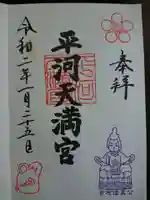 奉拝
平河天満宮
令和二年一月二十五日